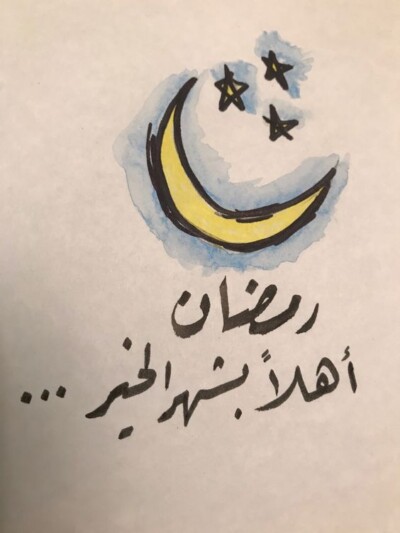 رمضان
أهلاً بشهر الخير ...